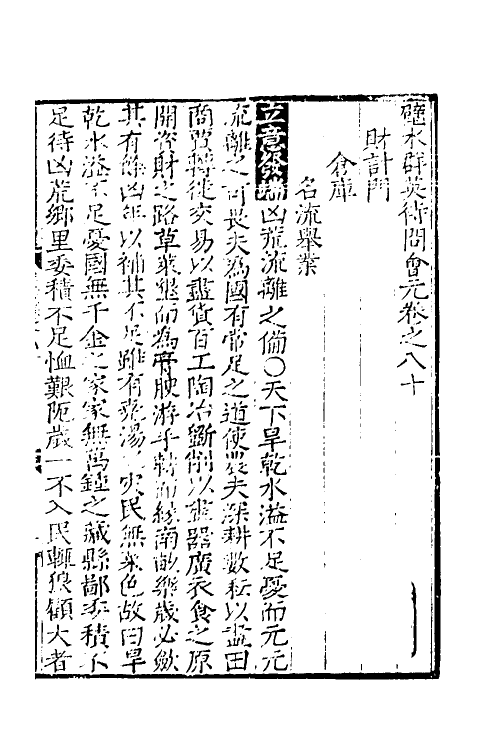 璧水群英待問會元卷之八十
財計門
倉庫
名流舉業
立意發端凶荒流離之備〇天下旱乾水溢不足憂而元元
流離之可畏夫為國有常足之道使農夫深耕數耘以盡田
商賈轉徙交易以盡貨百工陶冶斲削以盡器廣衣食之原
開資財之路草萊墾而為膏腴游手轉而緣南畝樂歲必斂
其有餘凶年以補其不足雖有堯湯之災民無菜色故曰旱
乾水溢不足憂國無千金之家家無萬鍾之藏縣鄙委積不
足待凶荒鄉里委積不足恤艱阨歲一不入民轉狼顧大者